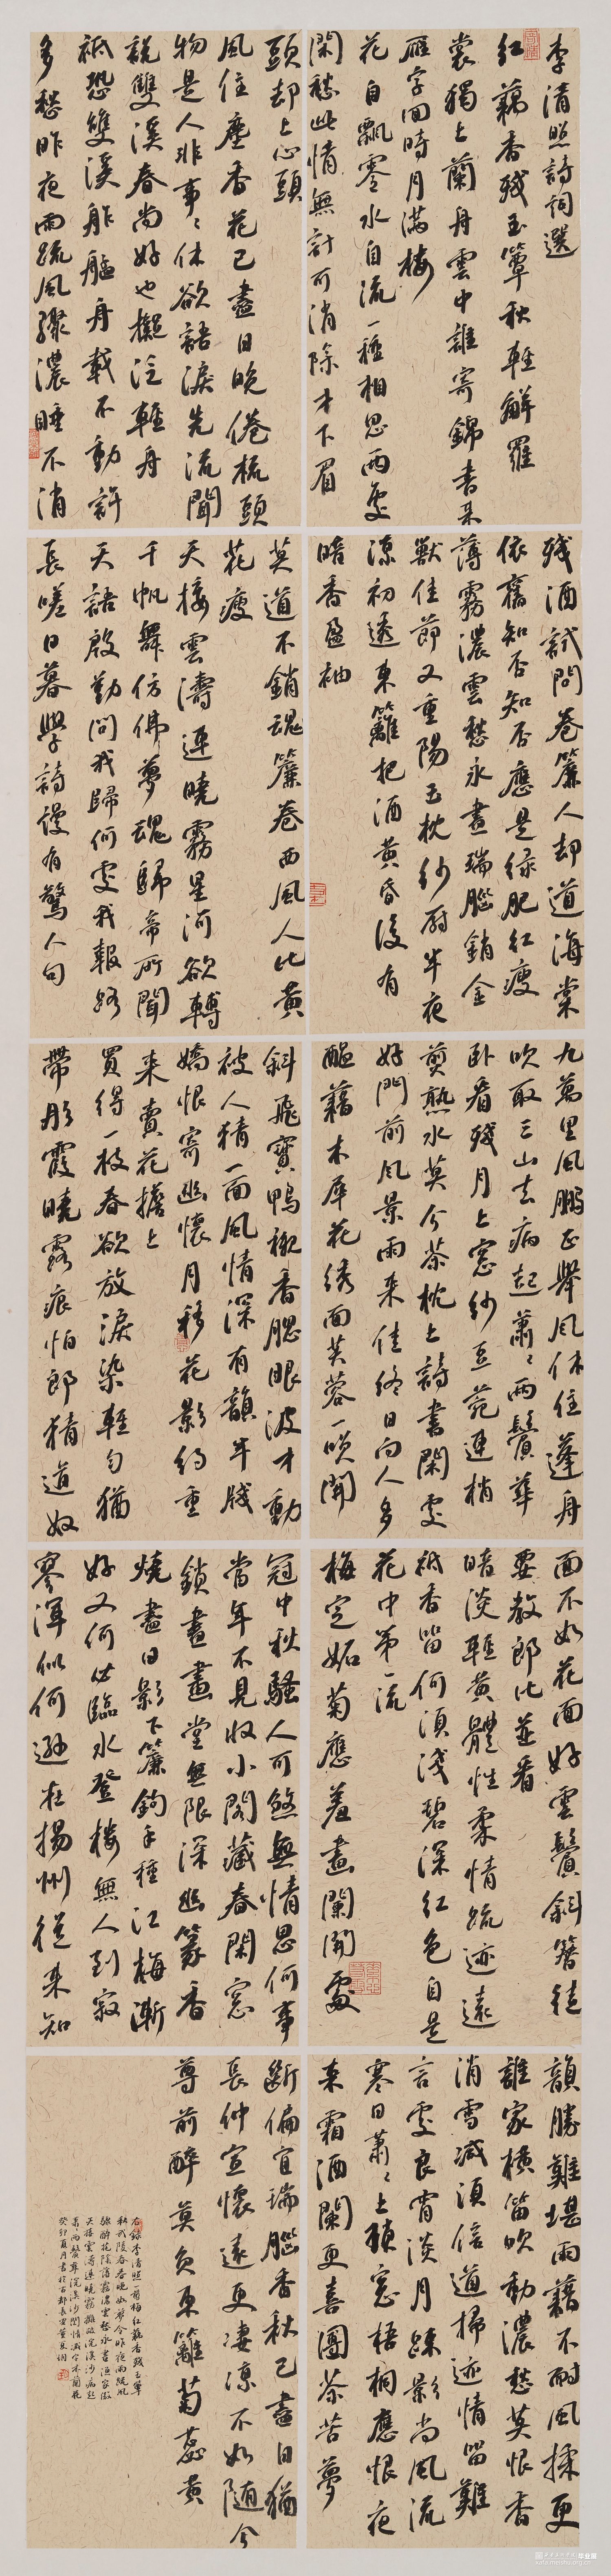 李清照詩詞選
红藕香殘玉簟秋輕解羅
裳獨上蘭舟雲中誰寄錦書来
雁字回時月滿楼
花自飄零水自流一種相思两處
閑愁此情無計可消除才下眉
頭却上心頭
風住塵香花已盡日晚倦梳頭
物是人非事事休欲語淚先流聞
說雙溪春尚好也擬泛輕舟
祗恐雙溪舴艋舟載不動許
多愁昨夜雨疏風驟濃睡不消
残酒試問卷簾人却道海棠
依舊知否知否應是绿肥红瘦
薄霧濃雲愁永晝瑞腦銷金
獸佳節又重陽玉枕纱厨半夜
凉初透東籬把酒黄昏後有
暗香盈袖
莫道不銷魂簾卷西風人比黄
花瘦
天接雲濤連曉霧星河欲轉
千帆舞仿佛夢魂歸帝所聞
天語殷勤問我歸何處我報路
長嗟日暮學詩謾有驚人句
九萬里風鵬正舉風休住蓬舟
吹取三山去病起蕭蕭两鬢華
卧看残月上窗纱豆蔻連梢
煎熟水莫分茶枕上詩書閑處
好門前風景雨来佳終日向人多
醖藉木犀花绣面芙蓉一笑開
斜飛寶鴨襯香腮眼波才動
被人猜一面風情深有韻半牋
嬌恨寄幽懷月移花影约重
来賣花擔上
買得一枝春欲放淚染輕勻猶
帶彤霞曉露痕怕郎猜道奴
面不如花面好雲鬢斜簪徒
要教郎比並看
暗淡輕黄體性柔情疏迹遠
祗香留何須淺碧深红色自是
花中第一流
梅定妬菊應羞畫闌開處
冠中秋騷人可煞無情思何事
當年不見收小閣藏春閑窗
鎖晝畫堂無限深幽篆香
燒盡日影下簾鉤手種江梅漸
好又何必臨水登樓無人到寂
寥渾似何遜在揚州從来知
韻勝難堪雨藉不耐風揉更
誰家横笛吹動濃愁莫恨香
消雪減須信道掃迹情留難
言處良宵淡月疏影尚風流
寒日蕭蕭上鎖窗梧桐應恨夜
来霜酒闌更喜團茶苦夢
斷偏宜瑞腦香秋已盡日猶
長仲宣懷遠更凄凉不如隨分
尊前醉莫負東籬菊蕊黄
右録李清照一剪梅红藕香残玉簟
秋武陵春春晚如夢令昨夜雨疏風
驟醉花陰薄霧濃雲愁永晝漁家傲
天接雲濤連曉霧攤破浣溪沙病起
蕭蕭两鬢華浣溪沙閨情減字木蘭花
癸卯夏月書於古都長安